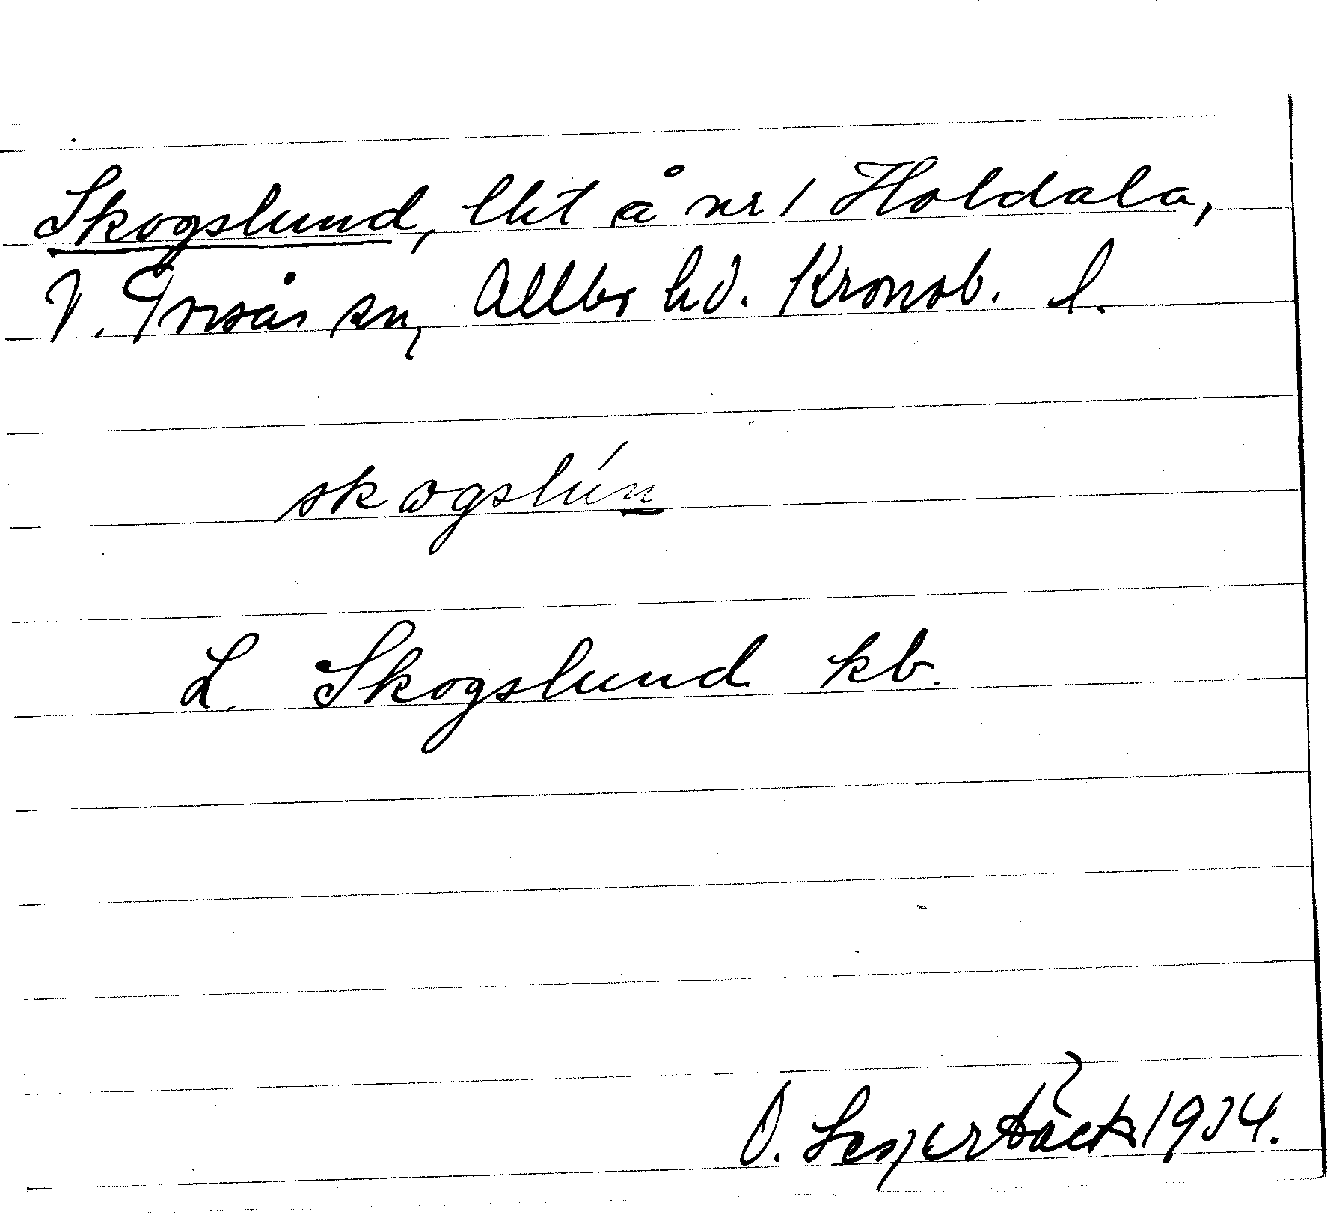 Skogslund, lht å nr 1 Holdala,
V. Torsås sn, Allbo hd. Kronob. l.
skogslún
L. Skogslund kb.
O. 1934.